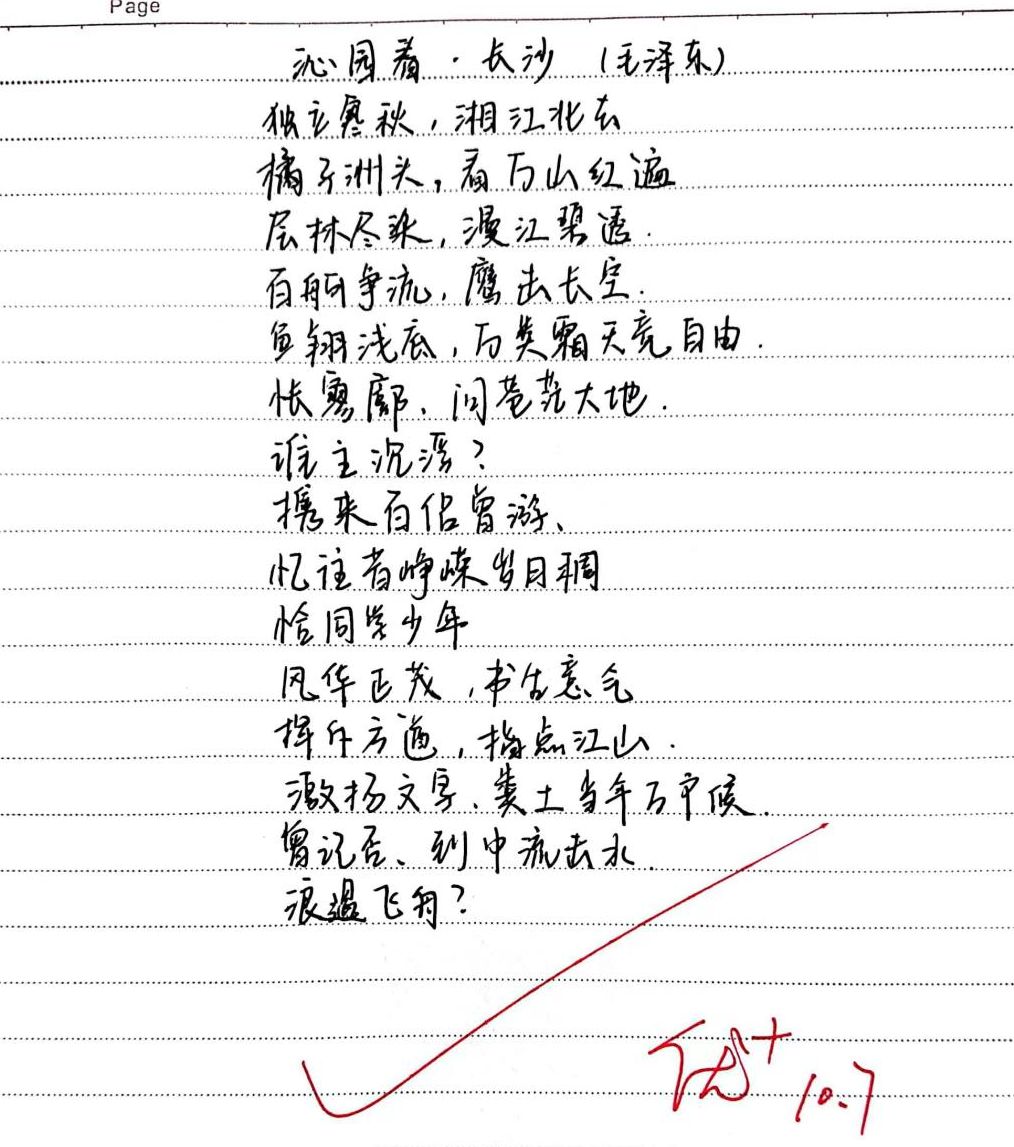 Page
沁园春·长沙 (毛泽东)
独立寒秋,湘江北去
橘子洲头,看万山红遍
层林尽染,漫江碧透.
百舸争流,鹰击长空.
鱼翔浅底,万类霜天竞自由.
怅寥廓、问苍茫大地.
谁主沉浮?
携来百侣曾游、
忆往昔峥嵘岁月稠
恰同学少年
风华正茂,书生意气
挥斥方遒,指点江山.
激扬文字、粪土当年万户侯.
曾记否、到中流击水.
浪遏飞舟?
优+ 10.7